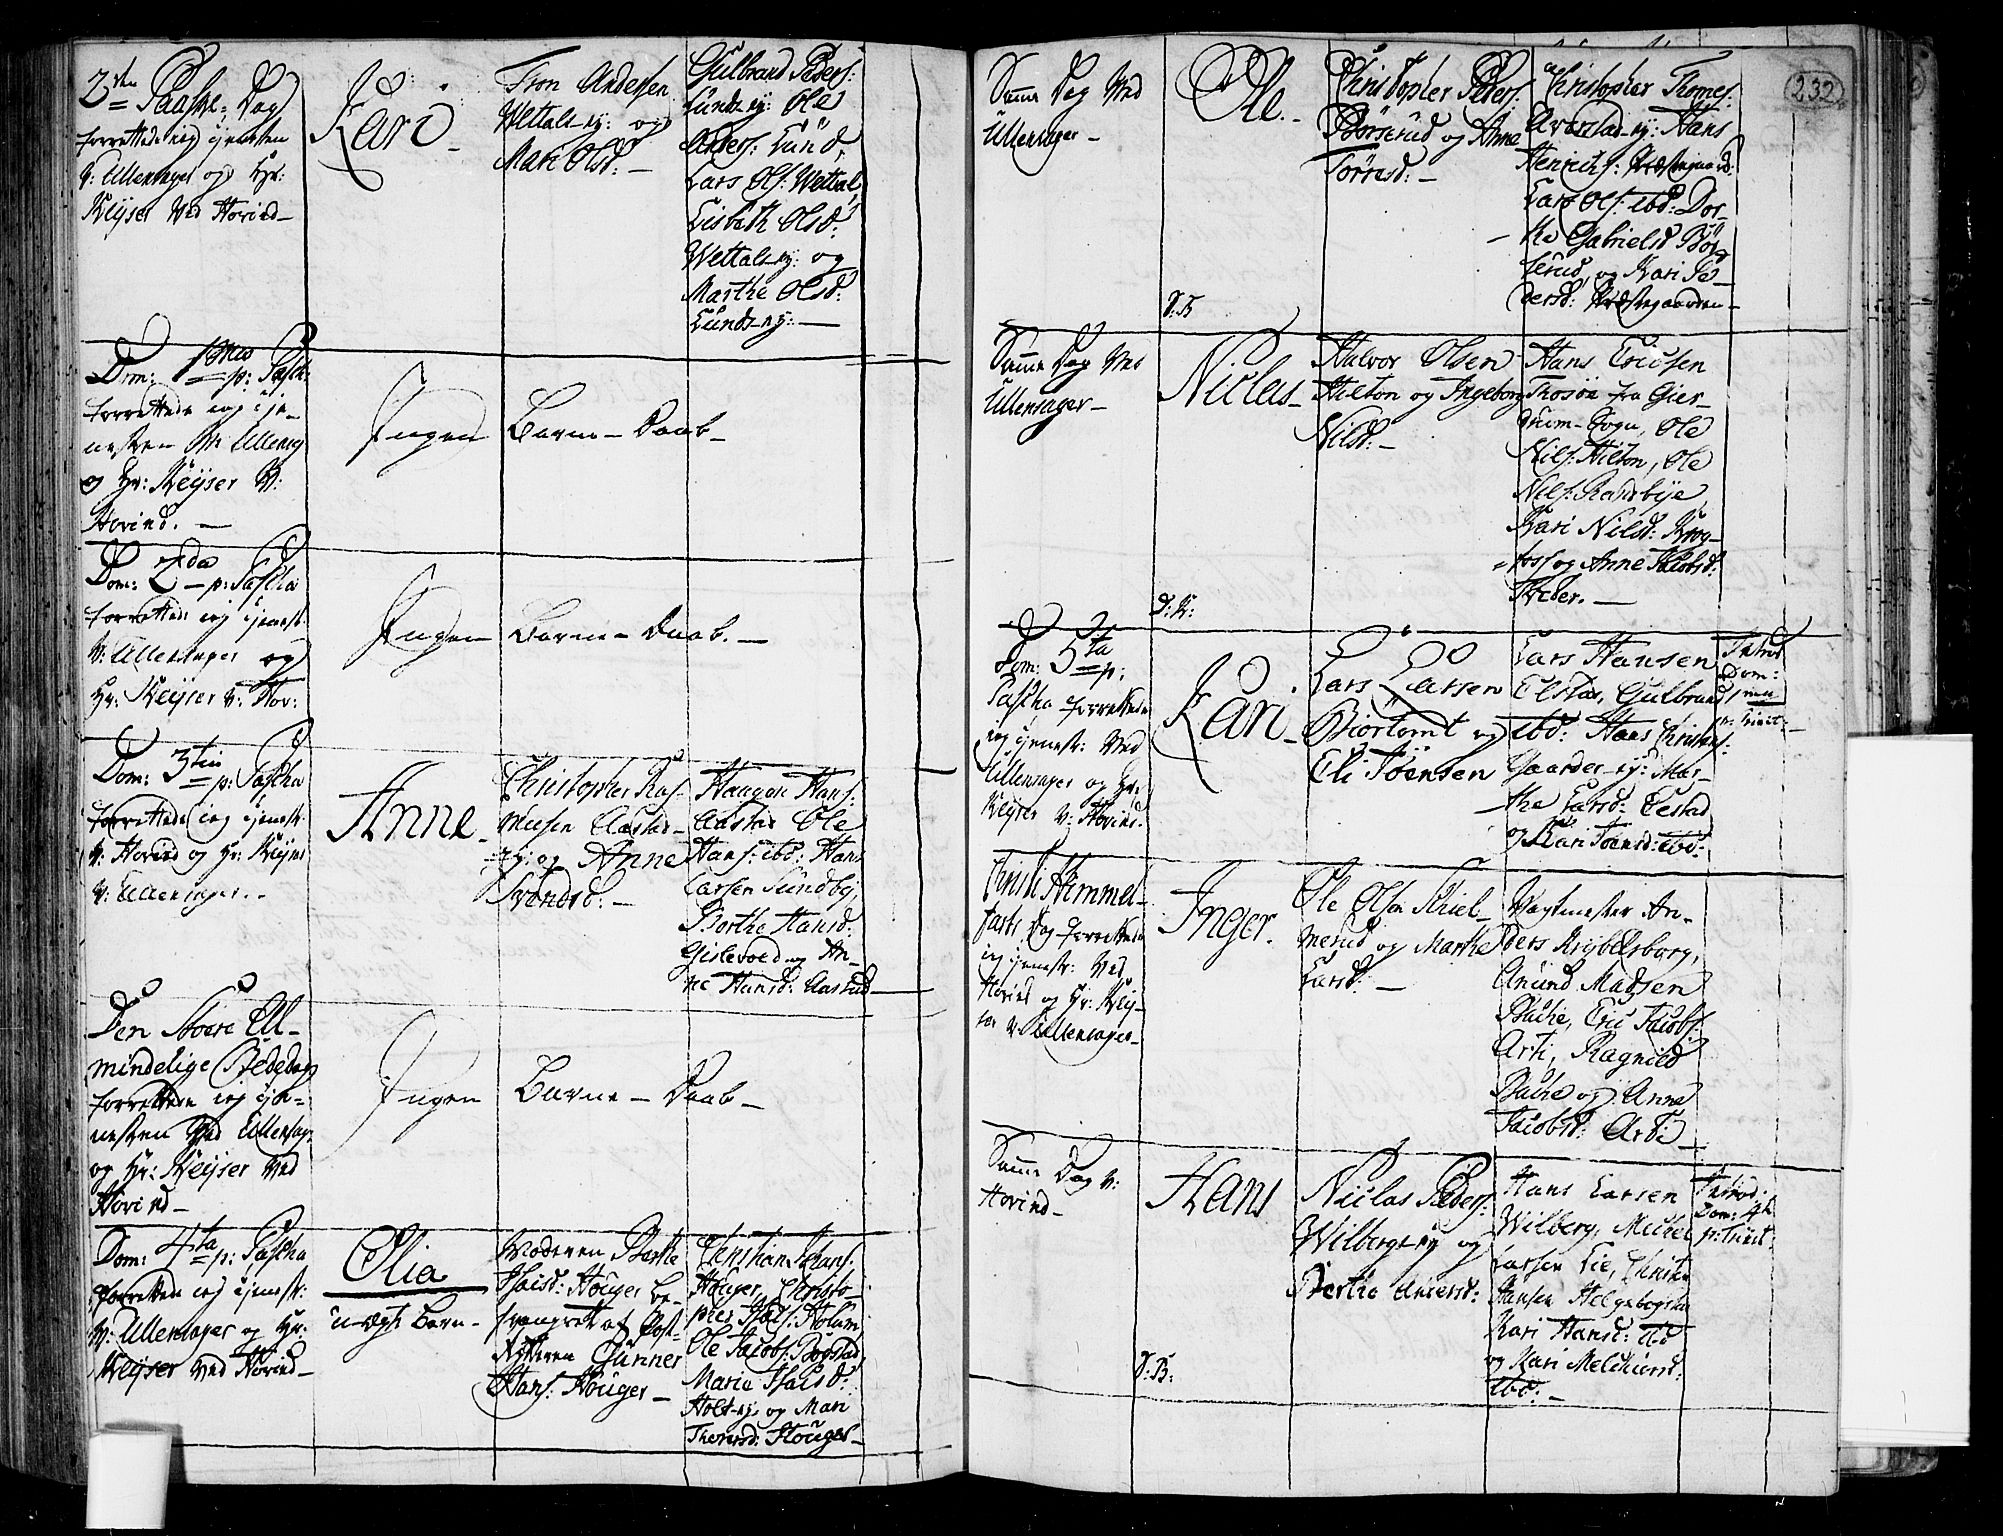 2den Paaske-Dag
forrettede ieg tjenesten
v: Ullensager og Hr:
Keyser ved Hovind
Kari
Tron Andersen
Wettals-ey: og
Mari Olsd:
Gulbrand Peders:
Lunds-ey: Ole
Anders: Lund,
Lars Ols: Wettal
Lisbeth Olsd:
Wettals-ey: og
Marthe Olsd:
Lunds-ey:
Dom: 1ma p: Pasch:
forrettede ieg tje-
nesten v Ullensag
og Hr: Keyser v:
Hovind.
Ingen Barne-Daab
Dom: 2da p: Pascha
forrettede ieg tjenest:
v: Ullensager og
Hr: Keyser v: Hov:
Ingen Barne-Daab.
Dom: 3tia p: Pascha
forrettede ieg tjenest:
v: Hovind og Hr: Keyser
v: Ullensager.
Anne
Christopher Ras-
musen Aastad-
ey: og Anne
Svendsd:
Haagen Hans:
Aastad Ole
Hans: ibd: Hans
Larsen Sundby,
Berthe Hansd:
Gislevold og An-
ne Hansd: Aastad
Den Stoere All-
mindelige Bededag
forrettede ieg tje-
nesten ved Ullensag:
og Hr: Keyser ved
Hovind
Ingen Barne-Daab
Dom: 4ta p: Pascha
forrettede ieg tjenest:
v: Ullensager og Hr:
Keyser ved Hovind
Olia
u-ægt Barn
Moderen Berthe
Isaisd: Houger be-
svangret af Post-
Rytteren Gunner
Hans: Houger
Christian Johans:
Houger, Christo-
pher Hads: Holum,
Ole Jacobs: Bogstad
Marie Isaisd:
Holt-ey: og Mari
Thoresd: Houger
232
Samme Dag ved
Ullensager
Ole.
D: B
Christopher Peders:
Børserud og Anne
Tørresd:
Christopher Thomes:
Averstad-ey: Hans
Henrichs: Præstegaard:
Lars Ols: ibd: Dor-
the Gabrielsd Bør-
serud, og Kari Pe-
dersd: Præstegaarden
Samme Dag ved
Ullensager
Niclas
D: K:
Halvor Olsen
Hilton og Ingeborg
Nilsd:
Hans Ericsen
fra Gier-
drum-Sogn, Ole
Nils: Hilton, Ole
Nils: Randbye
Kari Nilsd: Krog-
foss og Anne Jacobsd:
Dom: 5ta p:
Pascha forrettede
ieg tjenest: ved
Ullensager og Hr:
Keyser v: Hovind.
Kari
Lars Larsen
Biørtomt og
Eli Joensen
Lars Hansen
Elstad, Gulbrand
ibd: Hans Christens:
Gaarder-ey: Mar-
the Larsd: Elstad
og Kari Joensd: ibd:
Introd:
Dom:
1ma
p: Trinit:
Christi Himmel-
farts Dag forrettede
ieg tjenest: ved
Hovind og Hr: Key-
ser v: Ullensager
Inger.
Ole Olsen Kiel-
merud og Marthe
Larsd:
Vagtmester An-
ders Krybelsborg,
Amund Madsen
Bache, Eric Jacobs:
Arti, Ragnild
Bache og Anne
Jacobsd: Arti
Samme Dag v:
Hovind
Hans
D: B:
Niclas Peders:
Wilbergs-ey og
Berthe Andersd:
Hans Larsen
Wilberg, Michel
Larsen Lie, Christen
Hansen Helgebogstad
Kari Hansd: ibd
og Kari Melchiorsd:
ibd:
Introd:
Dom: 4ta
p: Trinit: